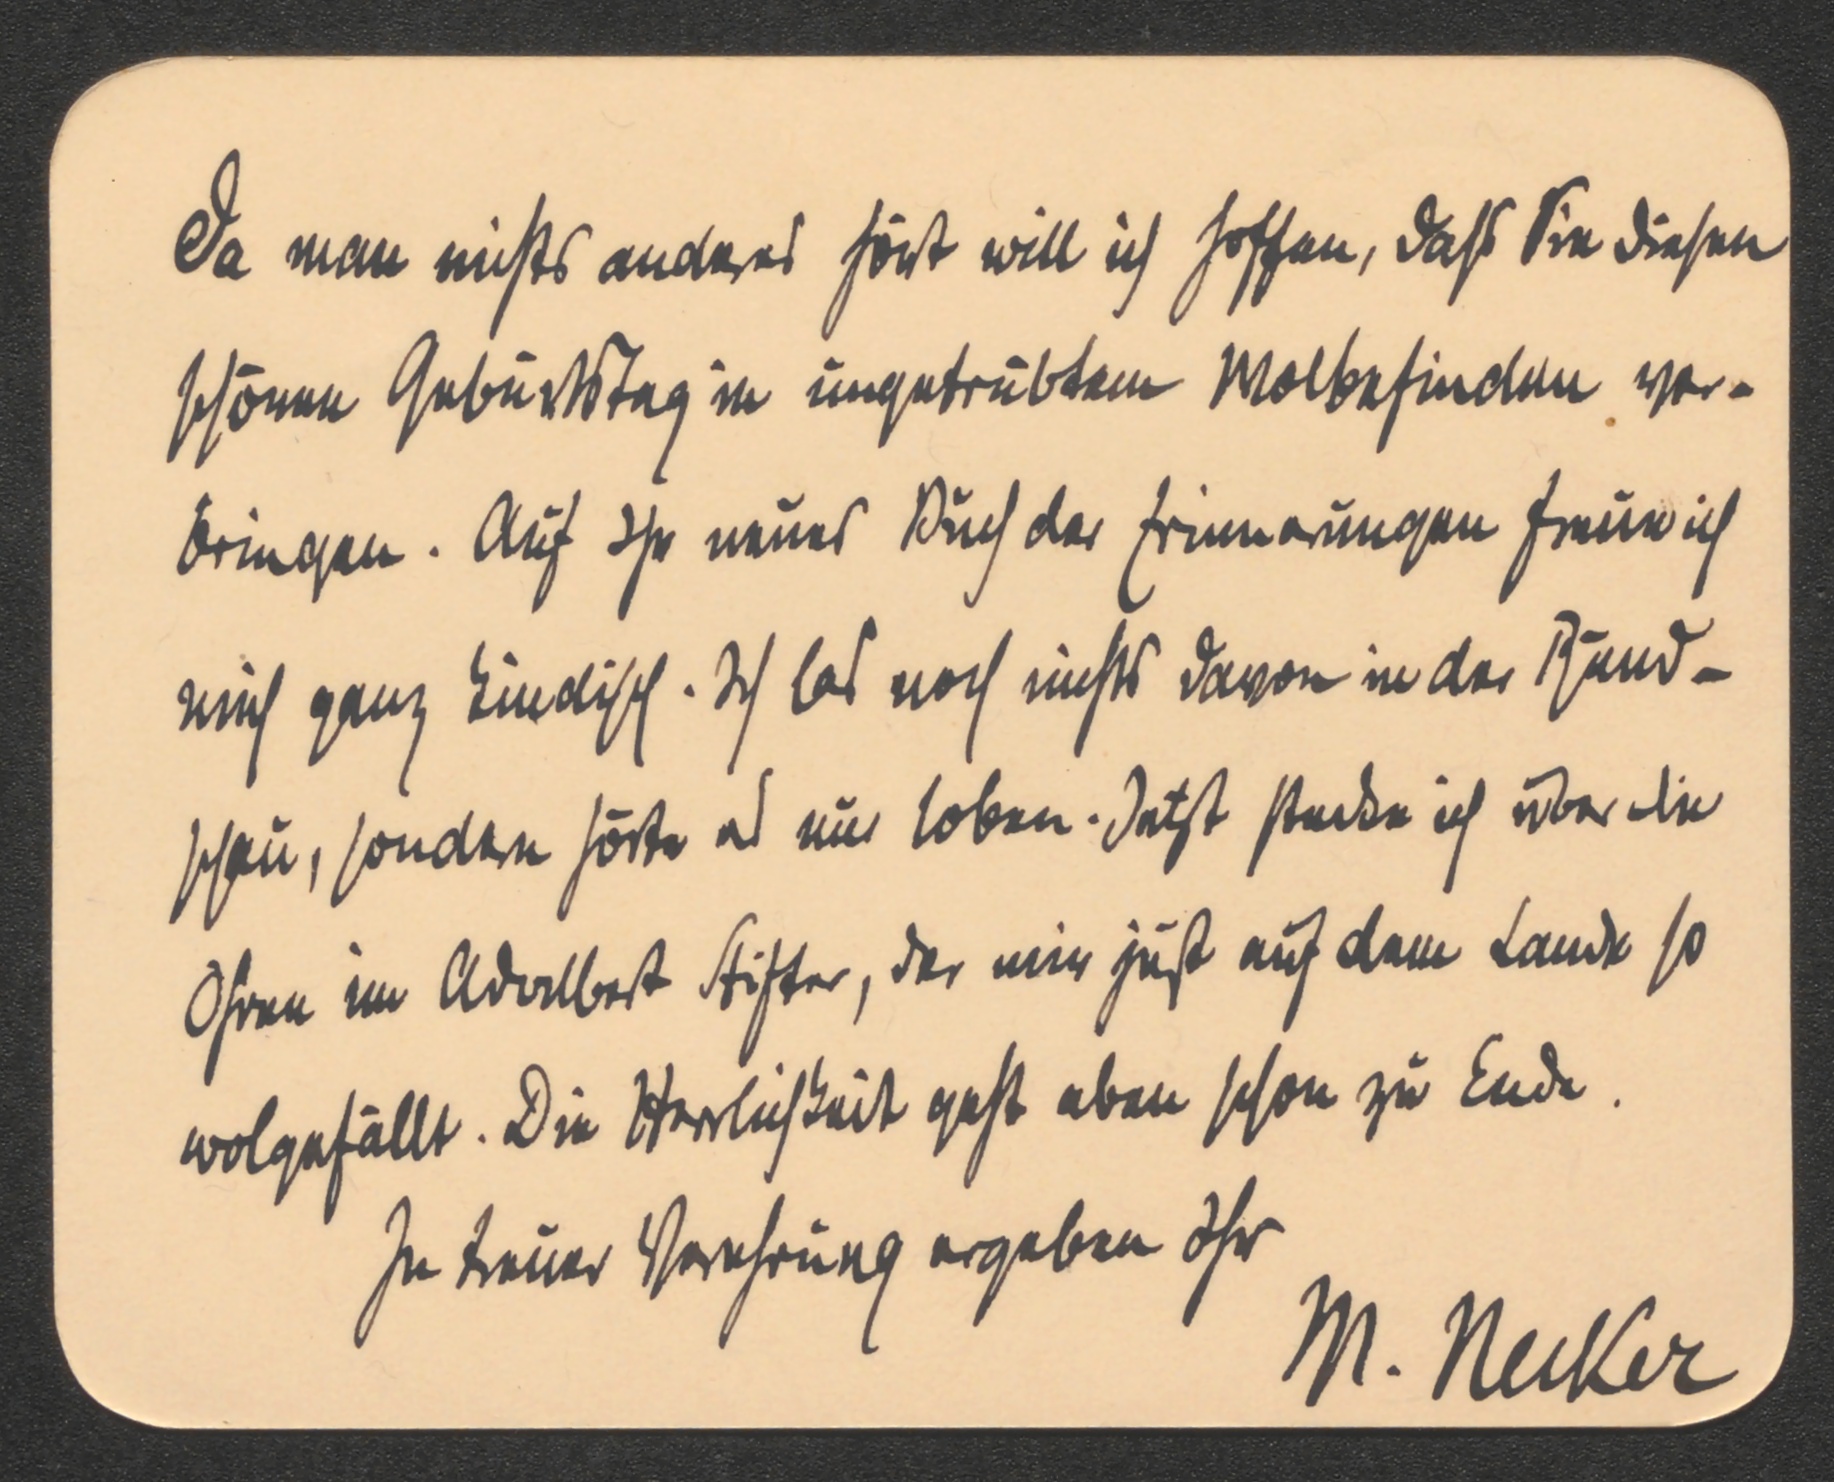 Da man nichts anderes hört will ich hoffen, daß Sie diesen
schönen Geburtstag in ungetrübtem Wolbefinden ver-
bringen. Auf Ihr neues Buch der Erinnerungen freue ich
mich ganz kindisch. Ich las noch nichts davon in der Rund-
schau, sondern hörte es nur loben. Jetzt stecke ich über die
Ohren im Adalbert Stifter, der mir just auf dem Lande so
wolgefällt. Die Herrlichkeit geht eben schon zu Ende.
In treuer Verehrung ergeben Ihr
M. Necker